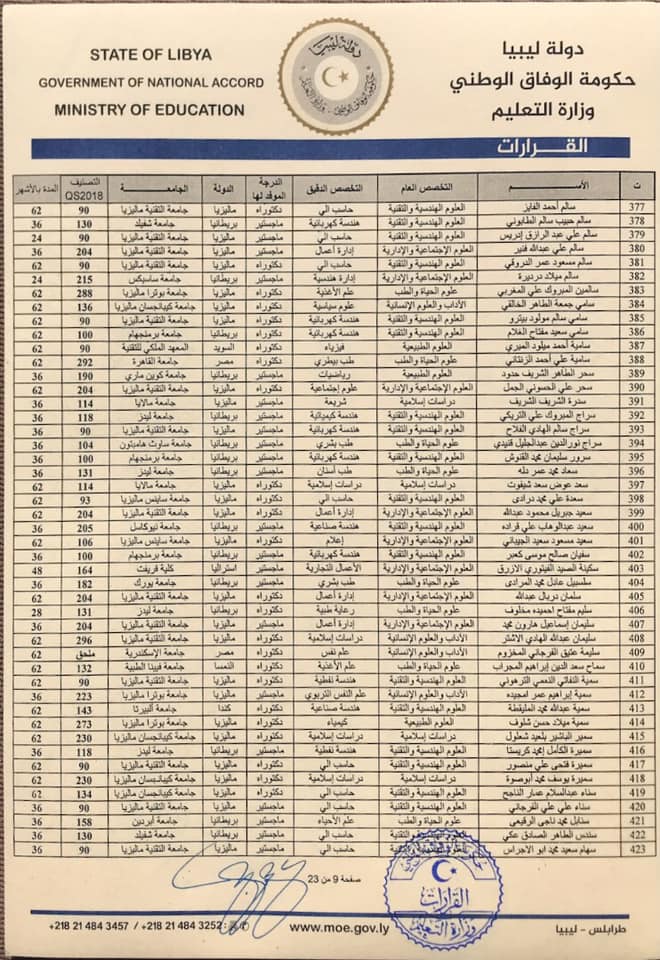 STATE OF LIBYA
GOVERNMENT OF NATIONAL ACCORD
MINISTRY OF EDUCATION
دولة ليبيا
حكومة الوفاق الوطني
وزارة التعليم
القـــرارات
ت الأســـم التخصص العام التخصص الدقيق الدرجة الموفد لها الدولة الجامعـــة التصنيف QS2018 المدة بالأشهر
377 سالم أحمد الفايز العلوم الهندسية والتقنية حاسب الي دكتوراه ماليزيا جامعة التقنية ماليزيا 90 62
378 سالم حبيب سالم الطابوني العلوم الهندسية والتقنية هندسة كهربائية ماجستير بريطانيا جامعة شفيلد 130 36
379 سالم علي عبد الرازق إدريس العلوم الهندسية والتقنية حاسب الي دكتوراه ماليزيا جامعة التقنية ماليزيا 90 24
380 سالم علي عبدالله فنير العلوم الإجتماعية والإدارية إدارة أعمال ماجستير ماليزيا جامعة التقنية ماليزيا 204 36
381 سالم مسعود عمر الدروقي العلوم الهندسية والتقنية حاسب الي دكتوراه ماليزيا جامعة التقنية ماليزيا 90 62
382 سالم ميلاد درديرة العلوم الإجتماعية والإدارية إدارة هندسية ماجستير بريطانيا جامعة ساسيكس 215 24
383 سالمين المبروك علي المغربي علوم الحياة والطب علم الأغذية دكتوراه ماليزيا جامعة بوترا ماليزيا 288 62
384 سامي جمعة الطاهر الخالقي الآداب والعلوم الإنسانية علوم سياسية دكتوراه ماليزيا جامعة كيبانجسان ماليزيا 136 62
385 سامي سالم مولود بيترو العلوم الهندسية والتقنية هندسة كهربائية دكتوراه ماليزيا جامعة التقنية ماليزيا 90 62
386 سامي سعيد مفتاح الغلام العلوم الهندسية والتقنية هندسة كهربائية دكتوراه بريطانيا جامعة برمنجهام 100 62
387 سامية أحمد ميلود الميري العلوم الطبيعية فيزياء دكتوراه السويد المعهد الملكي للتقنية 90 62
388 سامية علي أحمد الزنتاني علوم الحياة والطب طب بيطري دكتوراه مصر جامعة القاهرة 292 62
389 سحر الطاهر الشريف حدود العلوم الطبيعية رياضيات ماجستير بريطانيا جامعة كوين ماري 190 36
390 سحر علي الحسوني الجمل العلوم الإجتماعية والإدارية علوم إجتماعية دكتوراه ماليزيا جامعة التقنية ماليزيا 204 62
391 سدرة الشريف الشريف دراسات إسلامية شريعة ماجستير ماليزيا جامعة مالايا 114 36
392 سراج المبروك علي التريكي العلوم الهندسية والتقنية هندسة كيميائية ماجستير بريطانيا جامعة ليدز 118 36
393 سراج سالم الهادي الفلاح العلوم الهندسية والتقنية هندسة كهربائية ماجستير ماليزيا جامعة التقنية ماليزيا 90 36
394 سراج نورالدين عبدالجليل قنيدي علوم الحياة والطب طب بشري ماجستير بريطانيا جامعة ساوث هامبتون 104 36
395 سرور سليمان محمد القنوش العلوم الهندسية والتقنية هندسة كهربائية ماجستير بريطانيا جامعة برمنجهام 100 36
396 سعاد محمد عمر دله علوم الحياة والطب طب أسنان ماجستير بريطانيا جامعة ليدز 131 36
397 سعد عوض سعد شيفوت دراسات إسلامية دراسات إسلامية دكتوراه ماليزيا جامعة مالايا 114 62
398 سعدة علي محمد درادى العلوم الهندسية والتقنية حاسب الي دكتوراه ماليزيا جامعة ساينس ماليزيا 93 62
399 سعيد جبريل محمود عبدالله العلوم الإجتماعية والإدارية إدارة أعمال دكتوراه ماليزيا جامعة التقنية ماليزيا 204 62
400 سعيد عبدالوهاب علي قراده العلوم الهندسية والتقنية هندسة صناعية ماجستير بريطانيا جامعة نيوكاسل 205 36
401 سعيد مسعود سعيد الجيباني العلوم الإجتماعية والإدارية إعلام دكتوراه ماليزيا جامعة ساينس ماليزيا 106 62
402 سفيان صالح موسى كعبر العلوم الهندسية والتقنية هندسة كهربائية ماجستير بريطانيا جامعة برمنجهام 100 36
403 سكينة الصيد الفيتوري الازرق العلوم الإجتماعية والإدارية الأعمال التجارية ماجستير استراليا كلية قريفث 164 48
404 سلسبيل عادل محمد المرادى علوم الحياة والطب طب بشري ماجستير بريطانيا جامعة يورك 182 36
405 سلمان دربال عبدالله العلوم الإجتماعية والإدارية إدارة أعمال دكتوراه ماليزيا جامعة التقنية ماليزيا 204 62
406 سليم مفتاح احميده مخلوف علوم الحياة والطب رعاية طبية دكتوراه بريطانيا جامعة ليدز 131 28
407 سليمان إسماعيل هارون محمد العلوم الإجتماعية والإدارية إدارة أعمال ماجستير ماليزيا جامعة التقنية ماليزيا 204 36
408 سليمان عبدالله الهادي الأشتر الآداب والعلوم الإنسانية دراسات إسلامية دكتوراه ماليزيا جامعة التقنية ماليزيا 296 62
409 سليمة عتيق الفرجاني المخزوم الآداب والعلوم الإنسانية علم نفس دكتوراه مصر جامعة الإسكندرية ملحق 62
410 سماح سعد الدين إبراهيم المجراب علوم الحياة والطب علم الأغذية دكتوراه النمسا جامعة فيينا الطبية 132 62
411 سمية النفاتي النعمي الترهوني العلوم الهندسية والتقنية هندسة نفطية دكتوراه ماليزيا جامعة التقنية ماليزيا 90 62
412 سمية إبراهيم عمر امجيده الآداب والعلوم الإنسانية علم النفس التربوي ماجستير ماليزيا جامعة بوترا ماليزيا 223 36
413 سمية عبدالله محمد المليقطة العلوم الهندسية والتقنية هندسة صناعية دكتوراه كندا جامعة ألبيرتا 143 62
414 سمية ميلاد حسن شلوف العلوم الطبيعية كيمياء دكتوراه ماليزيا جامعة بوترا ماليزيا 273 62
415 سمير البشير بلعيد شعلول دراسات إسلامية دراسات إسلامية دكتوراه ماليزيا جامعة كيبانجسان ماليزيا 230 62
416 سميرة الكامل إمحمد كريستا العلوم الهندسية والتقنية هندسة نفطية ماجستير بريطانيا جامعة ليدز 118 36
417 سميرة فتحي علي منصور العلوم الهندسية والتقنية حاسب الي دكتوراه ماليزيا جامعة التقنية ماليزيا 90 62
418 سميرة يوسف محمد أبوصوة دراسات إسلامية دراسات إسلامية دكتوراه ماليزيا جامعة كيبانجسان ماليزيا 230 62
419 سناء عبدالسلام عمار الناجح العلوم الهندسية والتقنية حاسب الي دكتوراه ماليزيا جامعة كيبانجسان ماليزيا 134 62
420 سناء علي علي الفرجاني العلوم الهندسية والتقنية حاسب الي ماجستير ماليزيا جامعة التقنية ماليزيا 90 36
421 سنابل محمد ناجي الرفيعي علوم الحياة والطب علم الأحياء ماجستير بريطانيا جامعة أبردين 158 36
422 سندس الطاهر الصادق عكي العلوم الهندسية والتقنية حاسب الي ماجستير بريطانيا جامعة شفيلد 130 36
423 سهام سعيد محمد ابو الاجراس العلوم الهندسية والتقنية حاسب الي ماجستير ماليزيا جامعة التقنية ماليزيا 90 36
صفحة 9 من 23
القرارات
وزارة التعليم
+218 21 484 3457 / +218 21 484 3252
www.moe.gov.ly
طرابلس - ليبيا